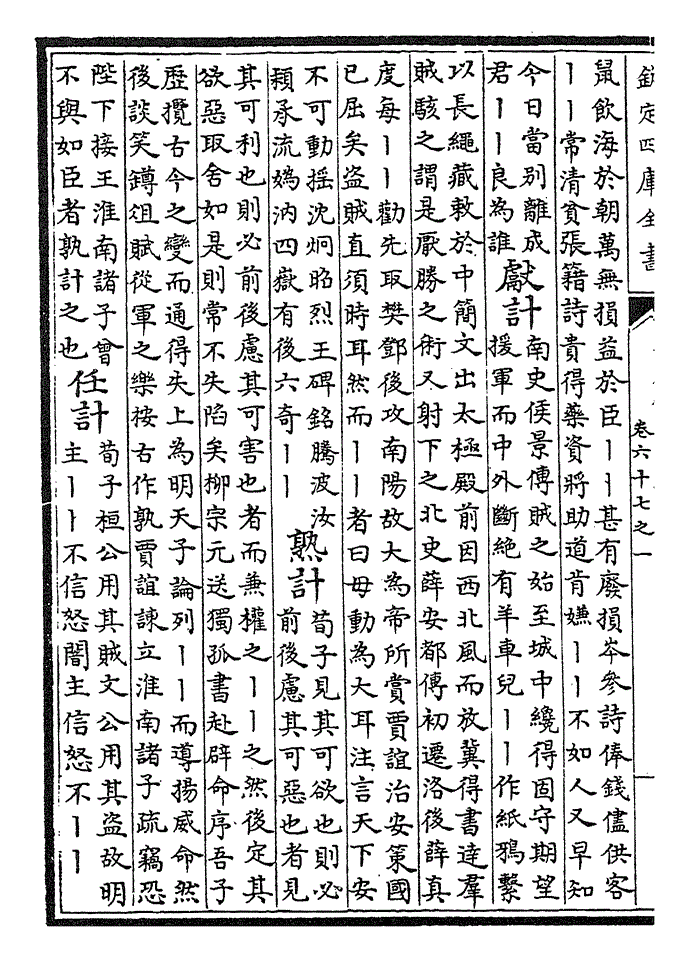 欽定四庫全書
卷六十七之一
鼠飲海於朝萬無損益於臣丨丨甚有廢損岑參詩俸錢儘供客
丨丨常清貧張籍詩貴得藥資將助道肯嫌丨丨不如人又早知
今日當別離成
君丨丨良為誰
獻計
南史侯景傳賊之始至城中纔得固守期望
援軍而中外斷絕有羊車兒丨丨作紙鴉繫
以長繩藏敕於中簡文出太極殿前因西北風而放冀得書達羣
賊駭之謂是厭勝之術又射下之北史薛安都傳初遷洛後薛真
度每丨丨勸先取樊鄧後攻南陽故大為帝所賞賈誼治安策國
已屈矣盜賊直須時耳然而丨丨者曰毋動為大耳注言天下安
不可動搖沈炯昭烈王碑銘騰波汝
潁承流媯汭四嶽有後六奇丨丨
熟計
荀子見其可欲也則必
前後慮其可惡也者見
其可利也則必前後慮其可害也者而兼權之丨丨之然後定其
欲惡取舍如是則常不失陷矣柳宗元送獨孤書赴辟命序吾子
歷攬古今之變而通得失上為明天子論列丨丨而導揚威命然
後談笑鐏俎賦從軍之樂按古作孰賈誼諫立淮南諸子疏竊恐
陛下接王淮南諸子曾
不與如臣者孰計之也
任計
荀子桓公用其賊文公用其盜故明
主丨丨不信怒闇主信怒不丨丨